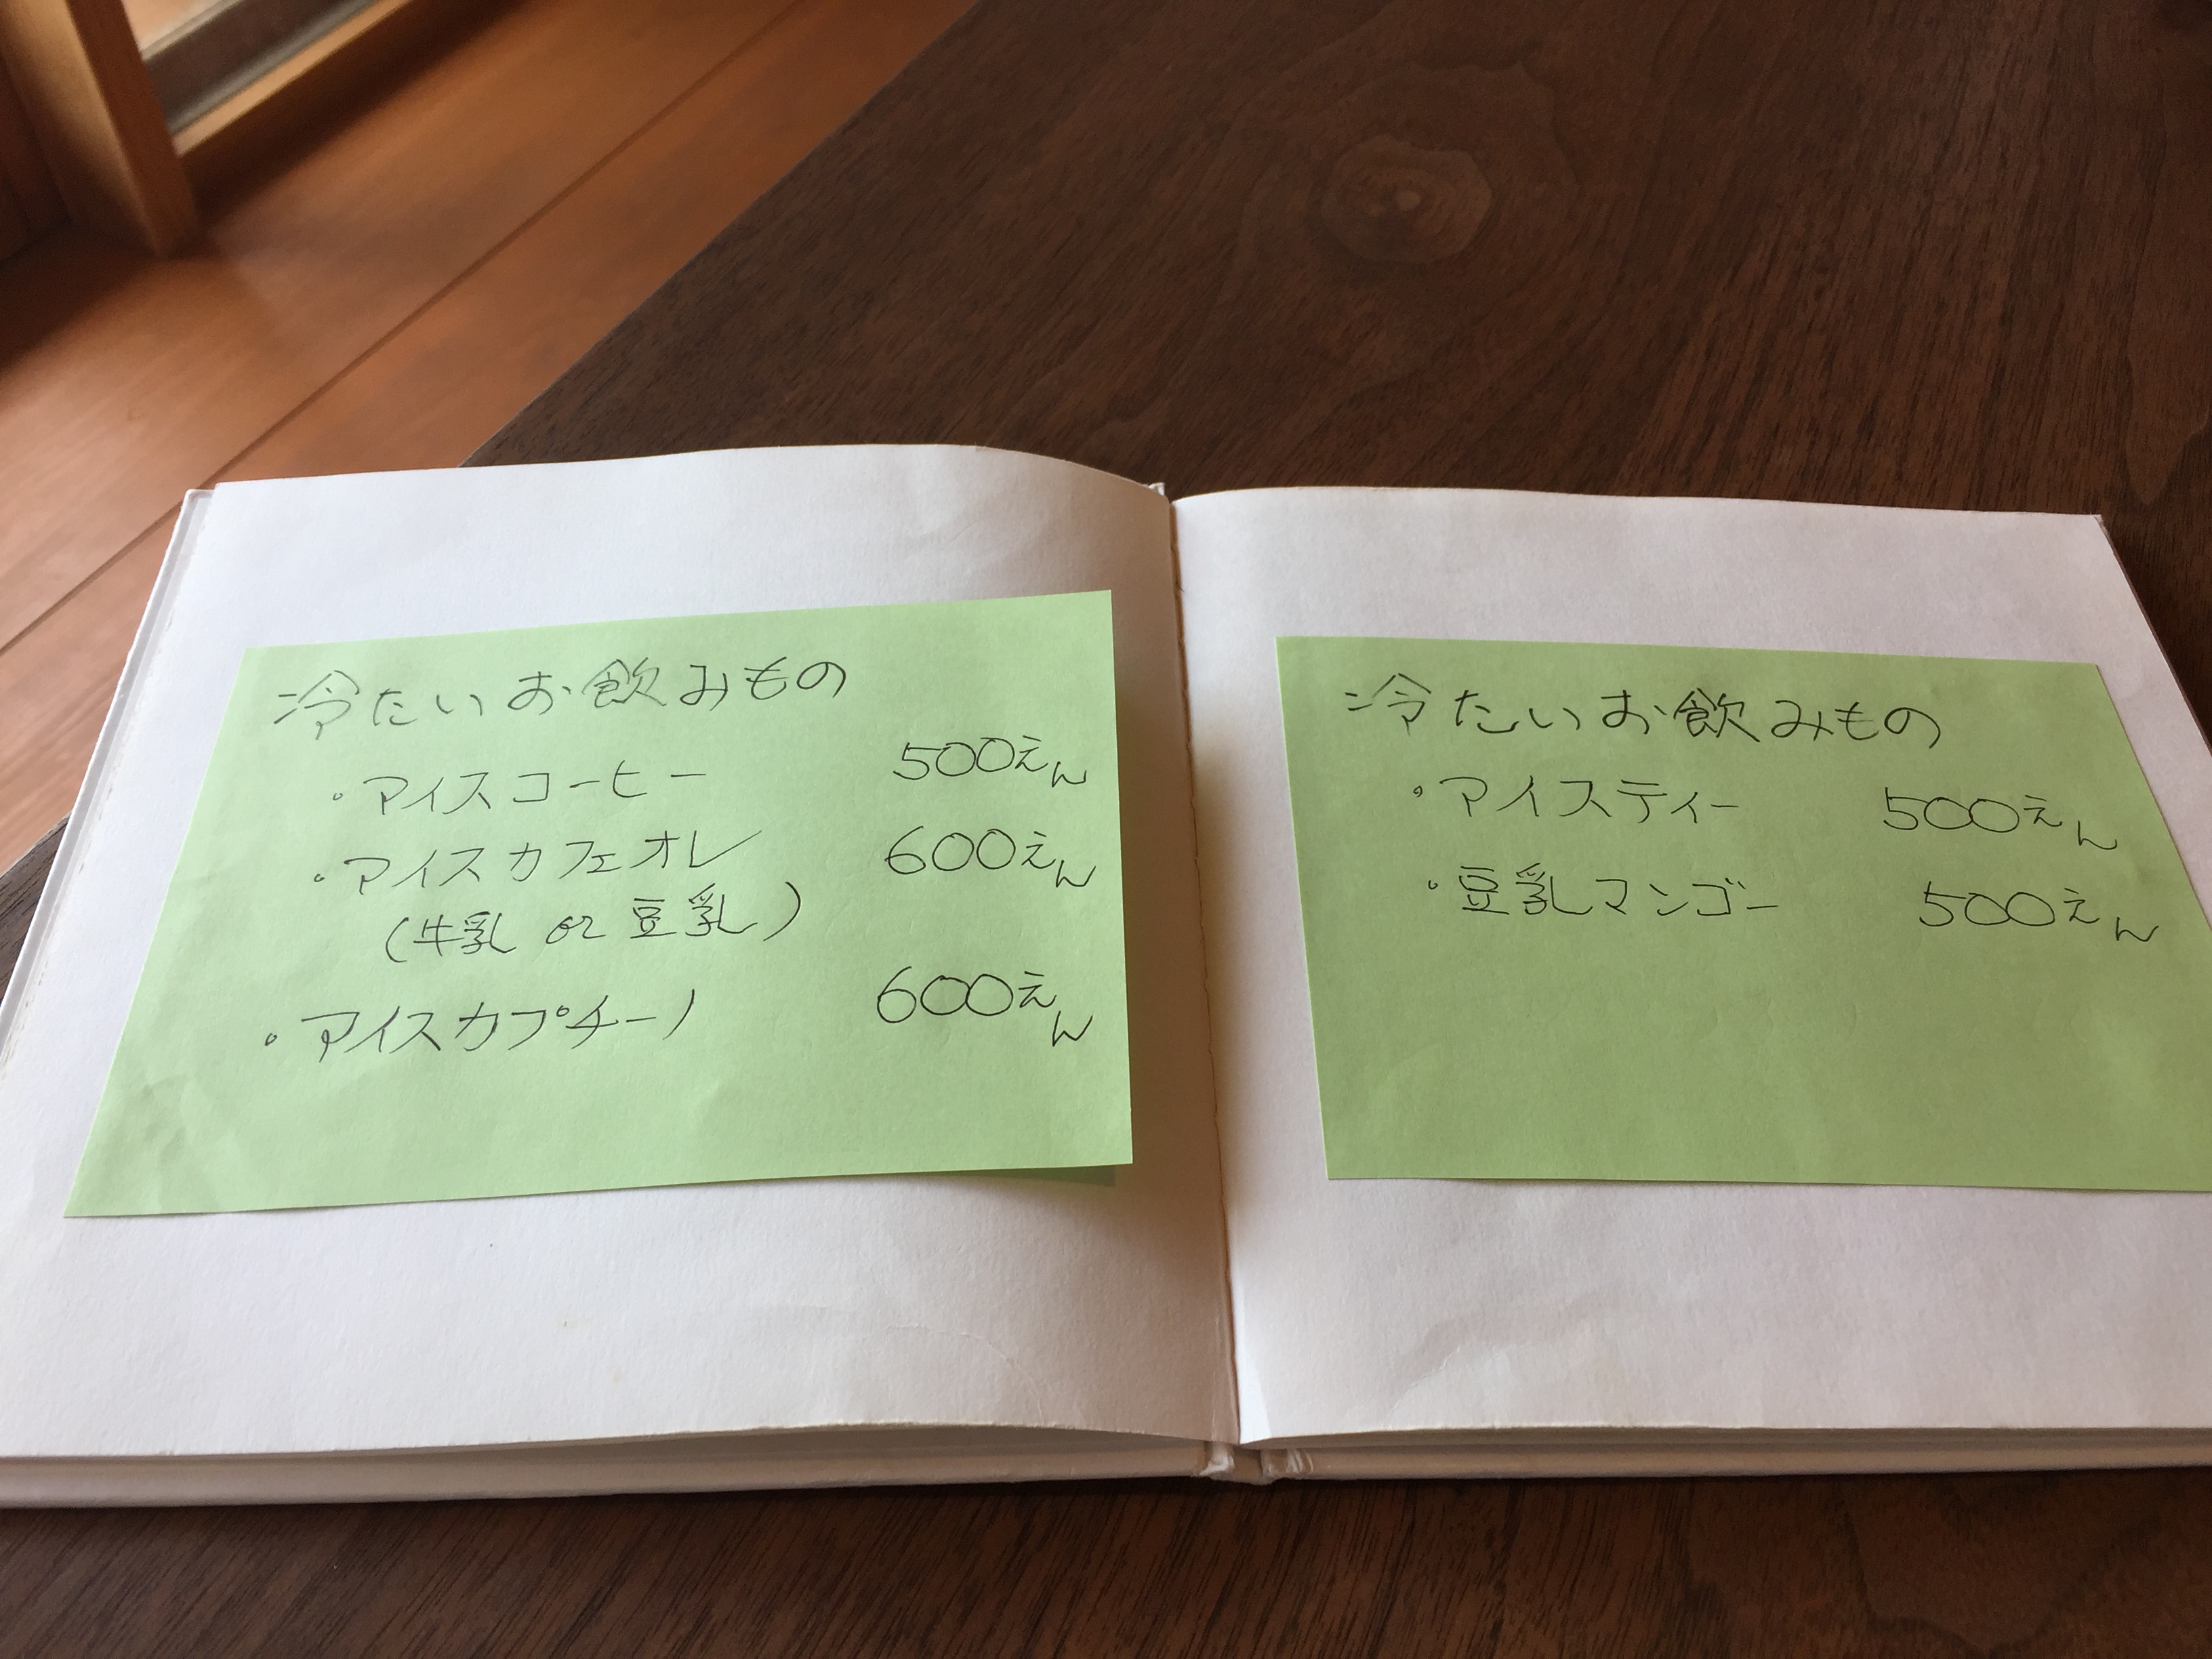 冷たいお飲みもの
・アイスコーヒー 500えん
・アイスカフェオレ 600えん
(牛乳 or 豆乳)
・アイスカプチーノ 600えん
冷たいお飲みもの
・アイスティー 500えん
・豆乳マンゴー 500えん